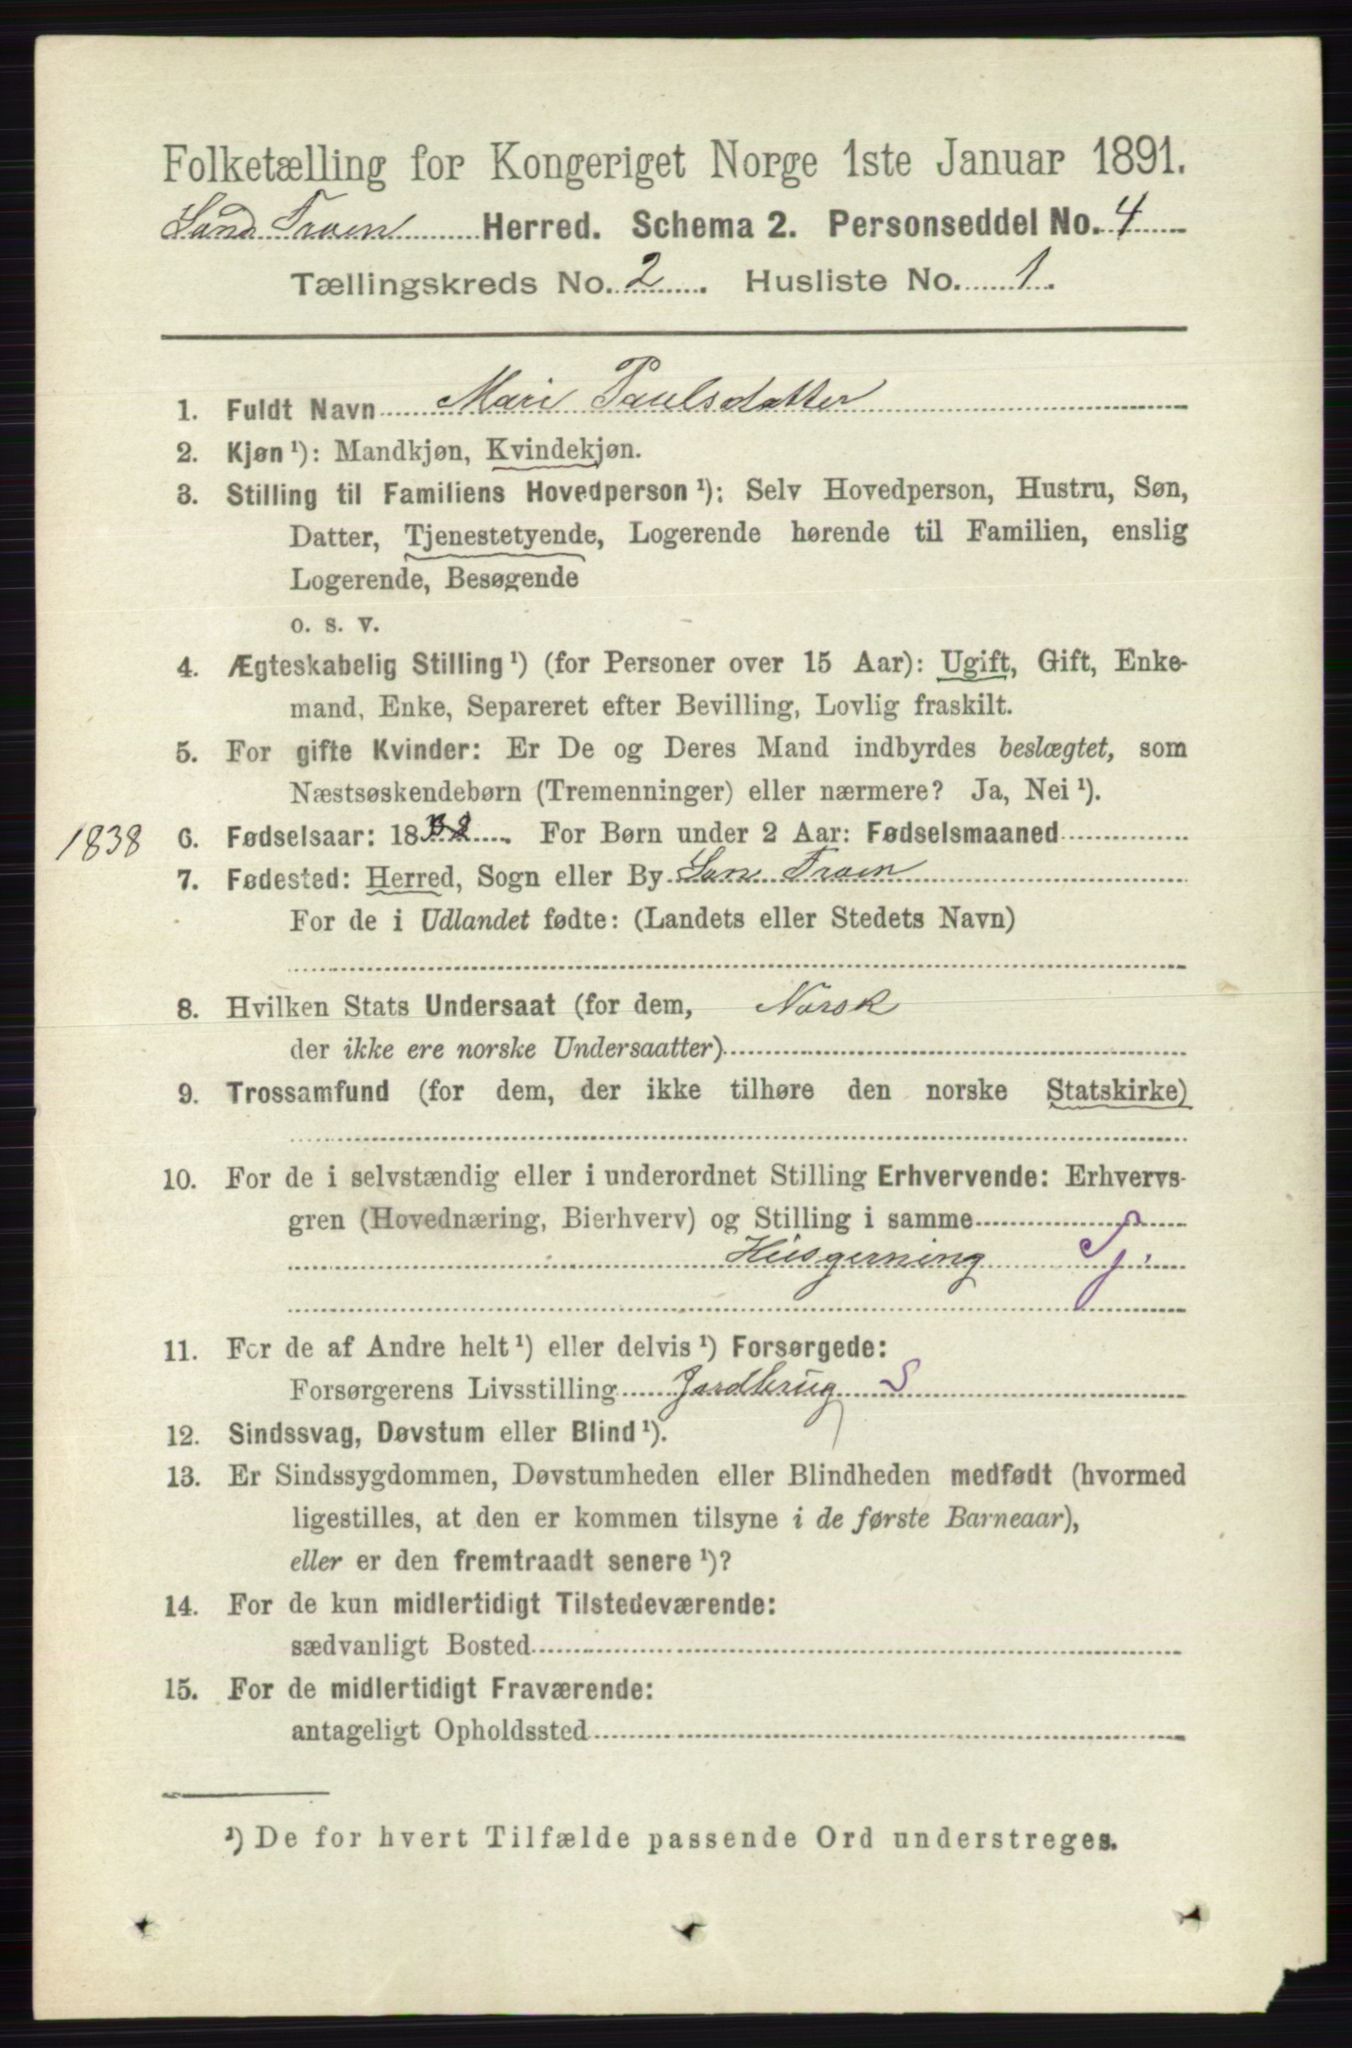 Folketælling for Kongeriget Norge 1ste Januar 1891.
Sand Traen Herred. Schema 2. Personseddel No. 4
Tællingskreds No. 2. Husliste No. 1.
1. Fuldt Navn Mari Paulsdatter
2. Kjøn ¹): Mandkjøn, Kvindekjøn.
3. Stilling til Familiens Hovedperson ¹): Selv Hovedperson, Hustru, Søn,
Datter, Tjenestetyende, Logerende hørende til Familien, enslig
Logerende, Besøgende
o. s. v.
4. Ægteskabelig Stilling ¹) (for Personer over 15 Aar): Ugift, Gift, Enke-
mand, Enke, Separeret efter Bevilling, Lovlig fraskilt.
5. For gifte Kvinder: Er De og Deres Mand indbyrdes beslægtet, som
Næstsøskendebørn (Tremenninger) eller nærmere? Ja, Nei ¹).
1838 6. Fødselsaar: 18 . For Børn under 2 Aar: Fødselsmaaned
7. Fødested: Herred, Sogn eller By San Traen
For de i Udlandet fødte: (Landets eller Stedets Navn)
8. Hvilken Stats Undersaat (for dem, Norsk
der ikke ere norske Undersaatter)
9. Trossamfund (for dem, der ikke tilhøre den norske Statskirke)
10. For de i selvstændig eller i underordnet Stilling Erhvervende: Erhvervs-
gren (Hovednæring, Bierhverv) og Stilling i samme
Husgerning Tj.
11. For de af Andre helt ¹) eller delvis ¹) Forsørgede:
Forsørgerens Livsstilling Jordbrug S
12. Sindssvag, Døvstum eller Blind ¹).
13. Er Sindssygdommen, Døvstumheden eller Blindheden medfødt (hvormed
ligestilles, at den er kommen tilsyne i de første Barneaar),
eller er den fremtraadt senere ¹)?
14. For de kun midlertidigt Tilstedeværende:
sædvanligt Bosted
15. For de midlertidigt Fraværende:
antageligt Opholdssted
¹) De for hvert Tilfælde passende Ord understreges.